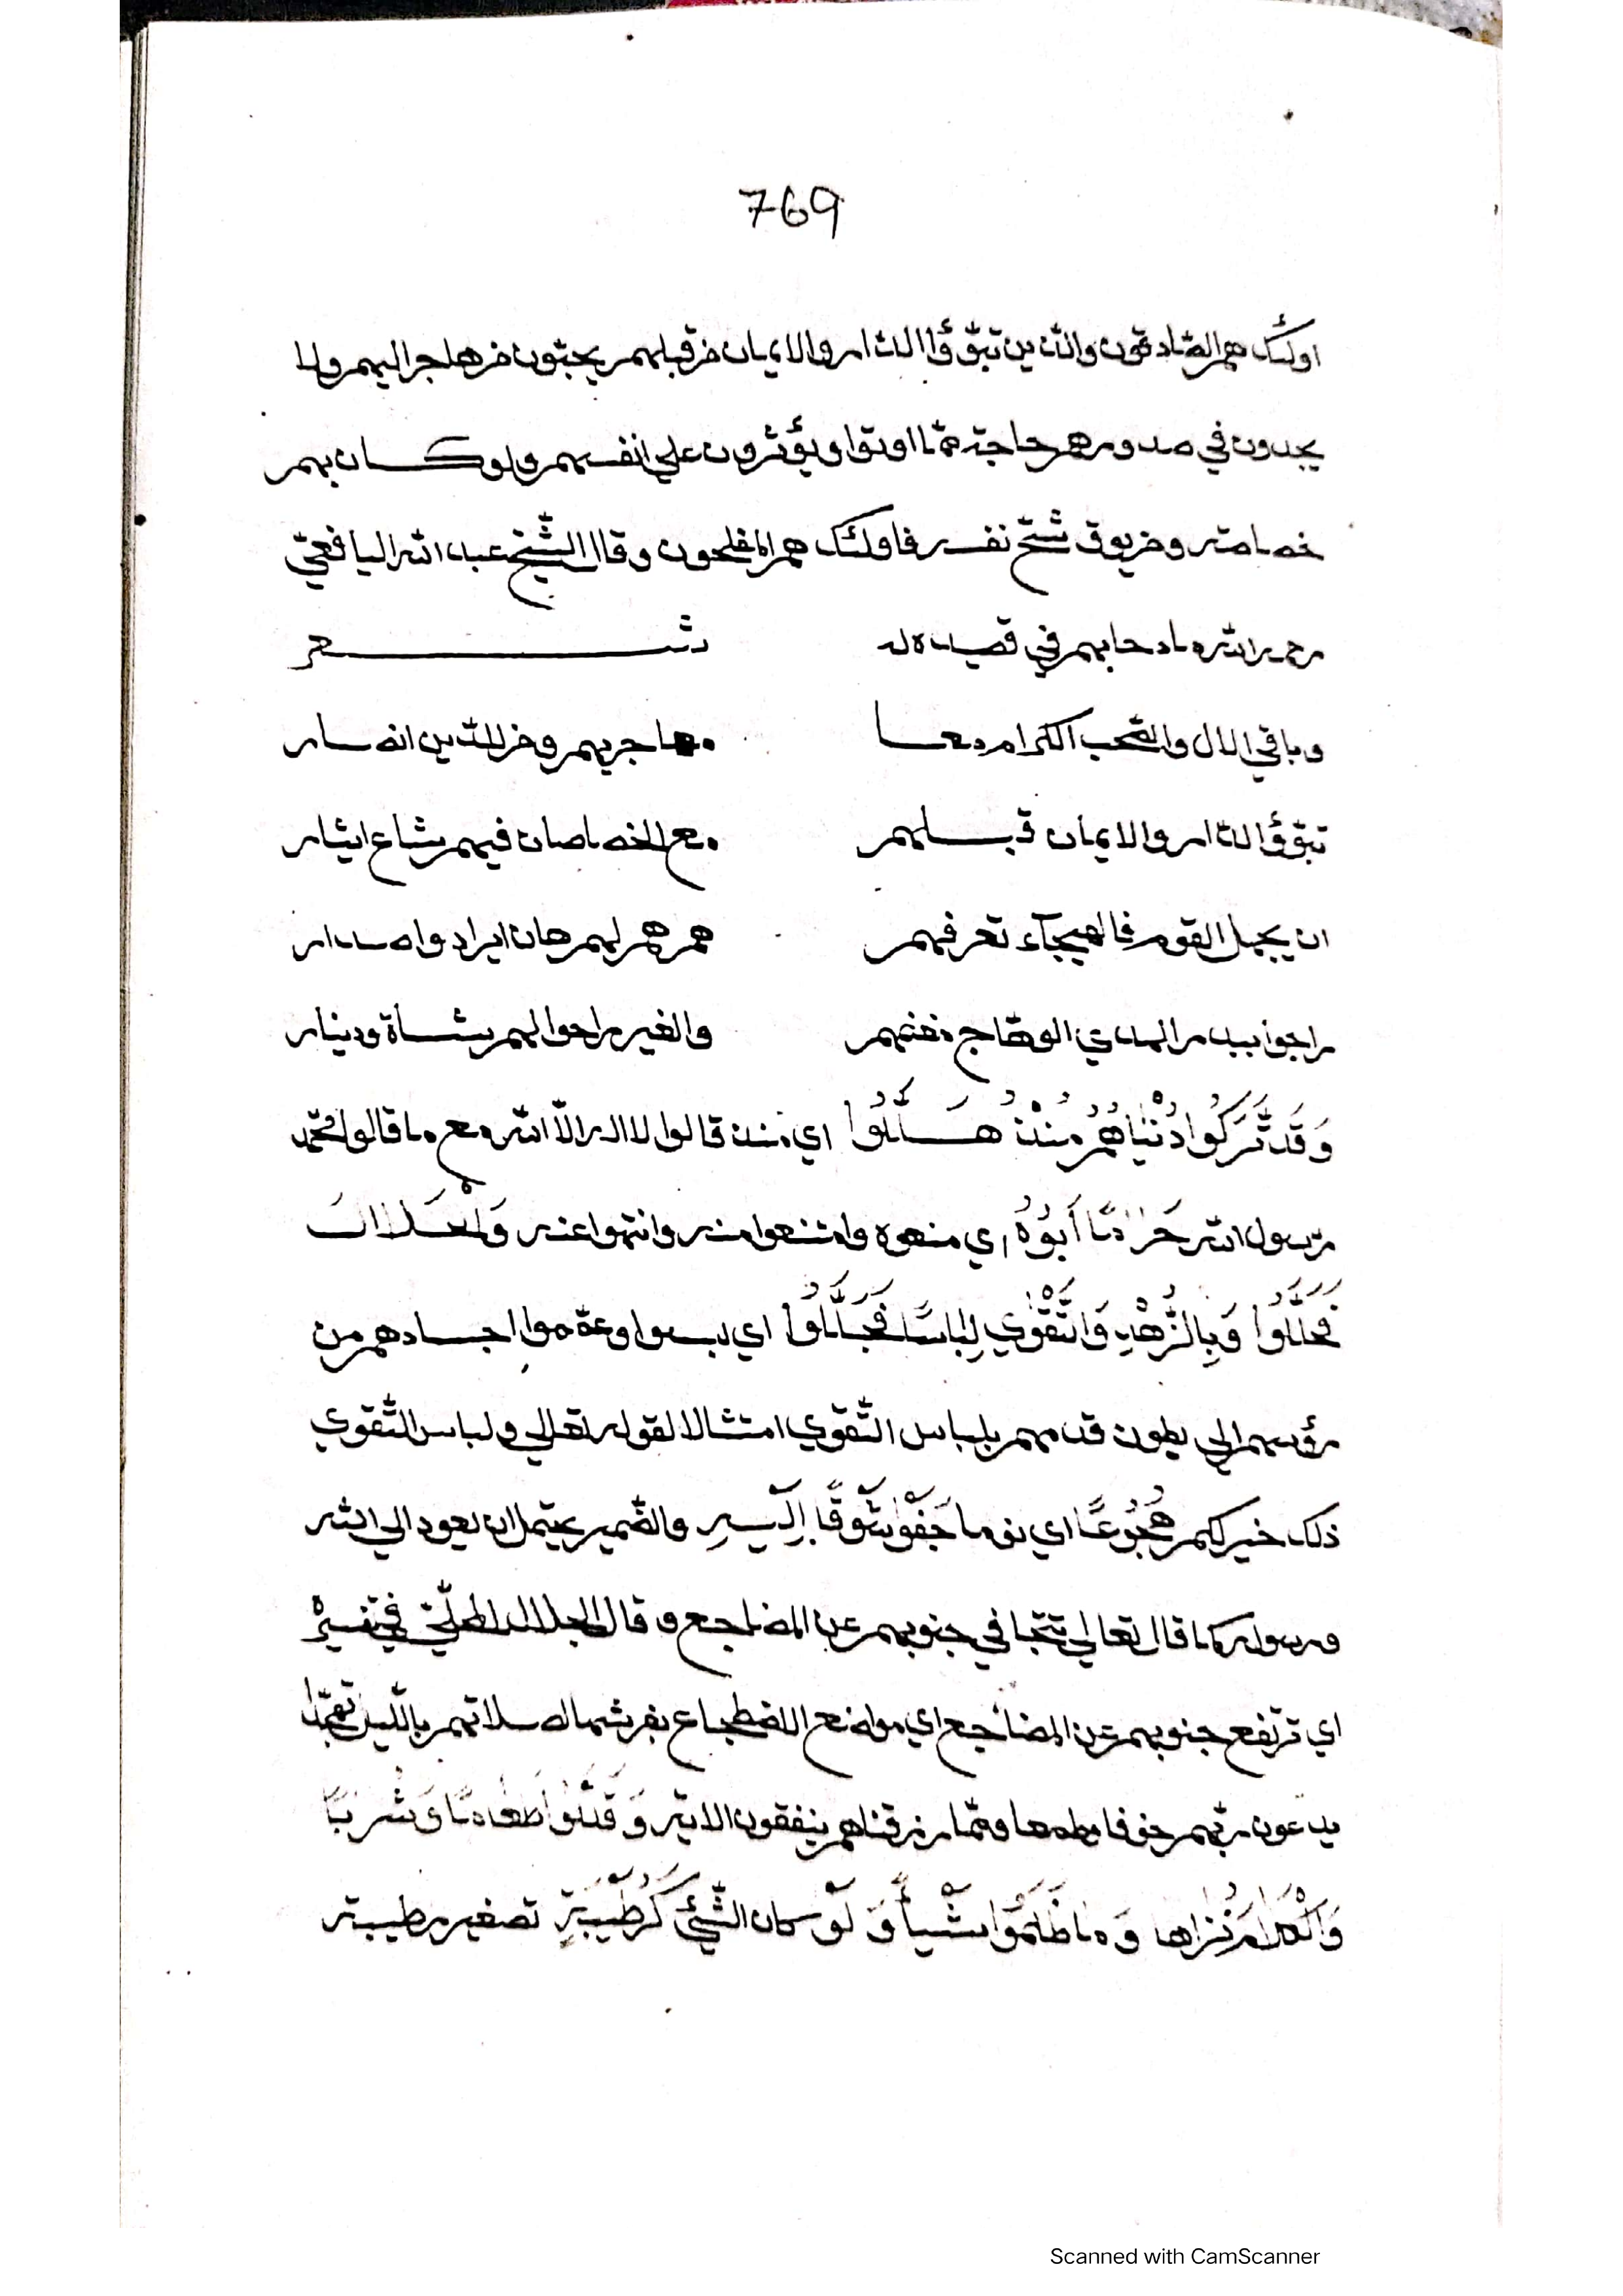 769
اولئك هم الصّادقون والّذين تبوّؤا الدّار والايمان من قبلهم يحبّون من هاجر اليهم ولا
يجدون في صدورهم حاجة ممّا اوتوا ويؤثرون علي انفسهم ولو كان بهم
خصاصة ومن يوق شحّ نفسه فاولئك هم المفلحون وقال الشّيخ عبد الله اليافعيّ
رحمه الله مادحا بهم في قصيدة له شعر
وباقي الال والصّحب الكرام معا مهاجريهم ومن للدّين انصار
تبوّؤا الدّار والايمان قبلهم مع الخصاصات فيهم شاع ايثار
ان يجهل القوم فالهيجآء تعرفهم هم هم لهم هان ايراد واصدار
راحوا ببدر الهدي الوهّاج مغنمهم والغير راحوا لهم شاة ودينار
وَقَدْ تَّرَكُوا دُنْيَاهُمُ مُنْذُ هَلَّلُوا اي منذ قالوا لا اله الاّ الله مع ما قالوا محمّد
رّسول الله حَرَامًا أَبَوْهُ اي منعوه وامتنعوا منه وانتهوا عنه وَالْحَلَالَ
تَحَلَّلُوا وَبِالزُّهْدِ وَالتَّقْوٰي لِبَاسًا تَجَلَّلُوا اي لبسوا وعمّموا اجسادهم من
رؤسهم الي بطون قدمهم بلباس التّقوي امتثالا لقوله تعالي ولباس التّقوي
ذلك خير لكم هُجُوعًا اي نوما جَفَوْا شَوْقًا اِلَيْهِ والضّمير يحتمل ان يعود الي الله
ورسوله كما قال تعالي تتجافي جنوبهم عن المضاجع وقال الجلال المحلّيّ في تفسيره
اي ترتفع جنوبهم عن المضاجع اي مواضع الاضطجاع بفرشها لصلاتهم باللّيل تهجّدا
يدعون ربّهم خوفا وطمعا وممّا رزقناهم ينفقون الاية وَقَلَّلُوا طَعَامًا وَشُرْبًا
وَالْكَلَامَ نُزَاهَا وَمَا ظَلَمُوْا شَيْأً وَلَوْ كان الشّيئ كَرُطَيْبَةٍ تصغير رطيبة
Scanned with CamScanner